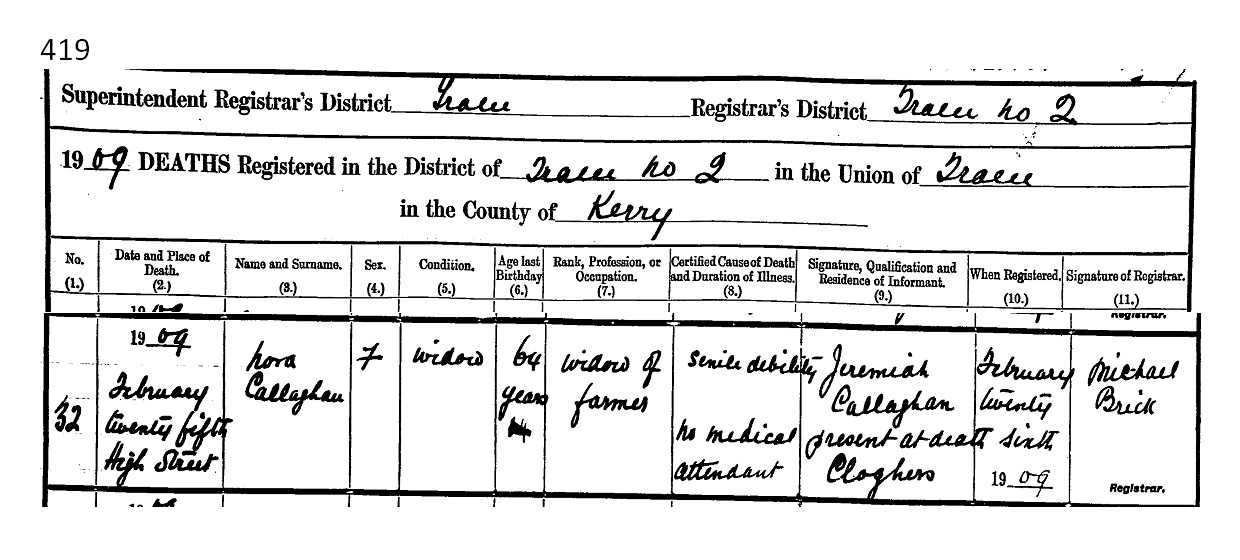 419
Superintendent Registrar's District Tralee Registrar's District Tralee No 2
1909 DEATHS Registered in the District of Tralee No 2 in the Union of Tralee
in the County of Kerry
No. (1.)
Date and Place of Death. (2.)
Name and Surname. (3.)
Sex. (4.)
Condition. (5.)
Age last Birthday (6.)
Rank, Profession, or Occupation. (7.)
Certified Cause of Death and Duration of Illness. (8.)
Signature, Qualification and Residence of Informant. (9.)
When Registered. (10.)
Signature of Registrar. (11.)
Registrar.
32
1909
February
twenty fifth
High Street
Nora
Callaghan
F
widow
64
years
widow of
farmer
Senile debility
No medical
attendant
Jeremiah
Callaghan
present at death
Cloghers
February
twenty
sixth
1909
Michael
Brick
Registrar.